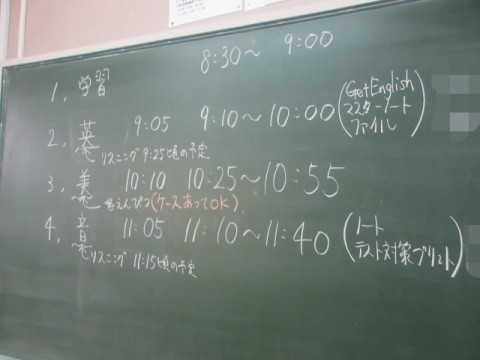 8:30～ 9:00
1. 学習
2. 英 9:05 9:10～10:00 (Get English
マスターノート
ファイル)
リスニング 9:25頃の予定
3. 美 10:10 10:25～10:55
色えんぴつ(ケースあってOK)
4. 音 11:05 11:10～11:40 (ノート
テスト対策プリント)
リスニング 11:15頃の予定